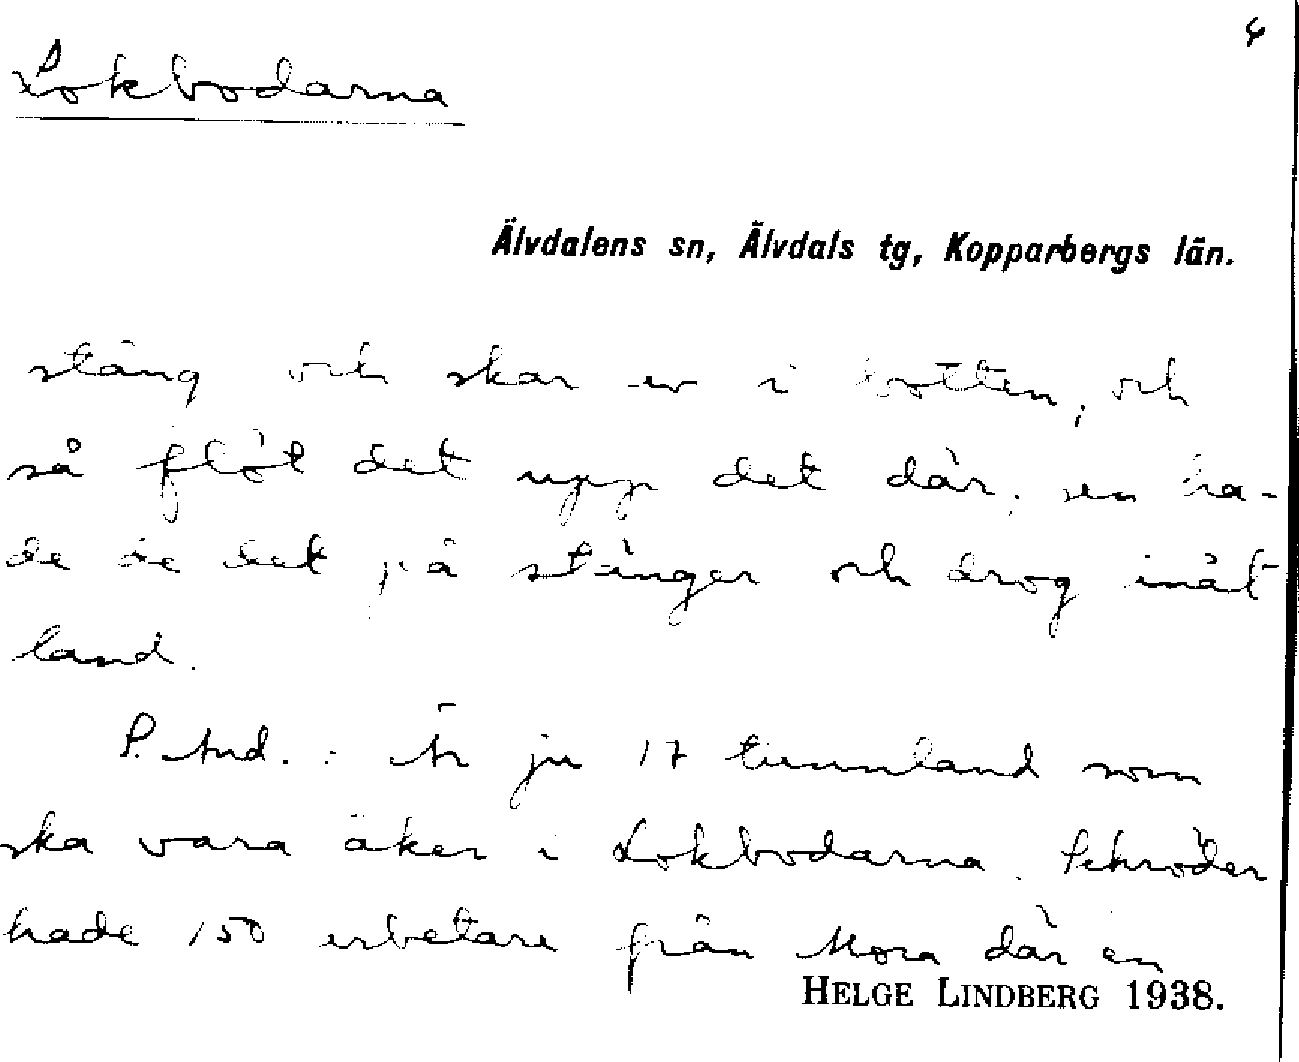 4
Lokbodarna
Älvdalens sn, Älvdals tg, Kopparbergs län.
stång och skar av i botten, och
så flöt det upp det där, sen ha-
de de det på stänger och drog inåt
land.
P. And. : Är ju 17 tunnland som
ska vara åker i Lokbodarna. Schröder
hade 150 arbetare från Mora där en
HELGE LINDBERG 1938.